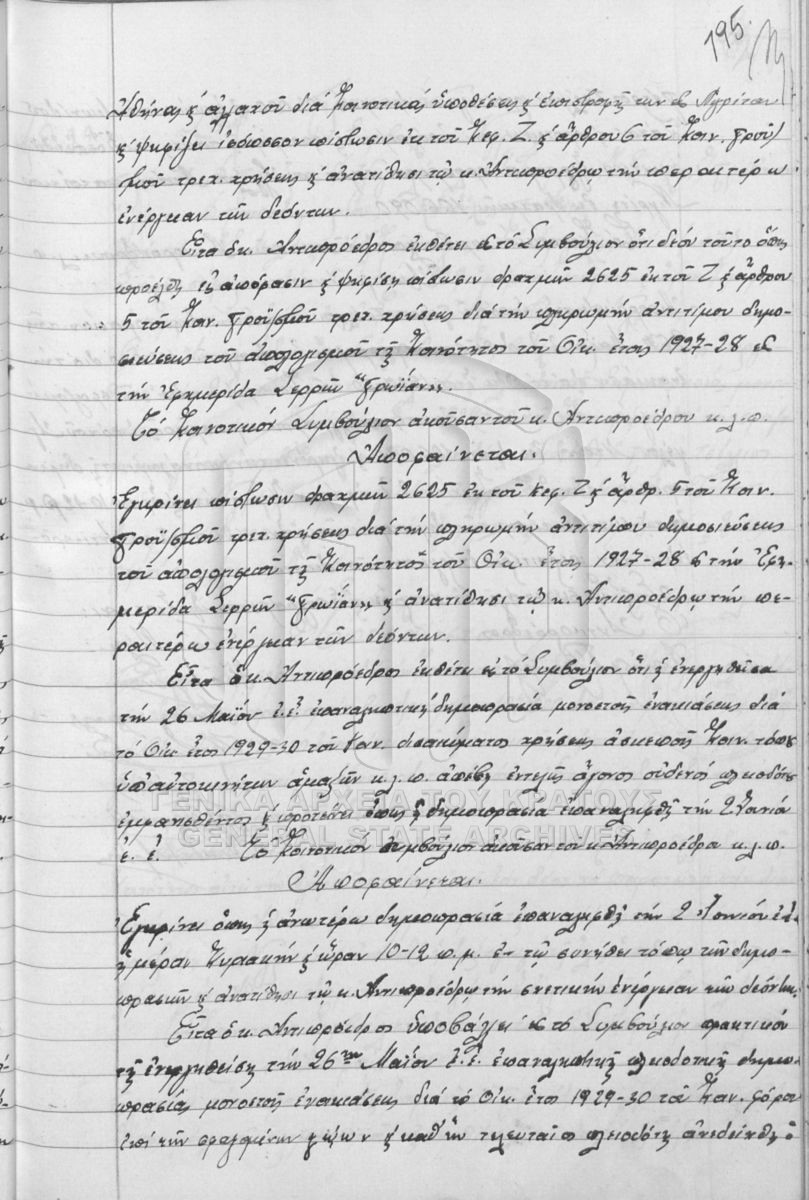 195.
Ἀθήνας κ' ἀλλαχοῦ διά Κοινοτικάς ὑποθέσεις κ' ἐπιστροφῆς των εἰς Νιγρίταν
κ' ψηφίζει ἰσόποσον πίστωσιν ἐκ τοῦ Κεφ. Ζ. κ' ἄρθρου 6 τοῦ Κοιν. Προϋ/
σμοῦ τρεχ. χρήσεως κ' ἀνατίθησι τῷ κ. Ἀντιπροέδρῳ τήν περαιτέρω
ἐνέργειαν τῶν δεόντων.
Εἶτα ὁ κ. Ἀντιπρόεδρος ἐκθέτει εἰς τό Συμβούλιον ὅτι δέον τοῦτο ὅπως
προέλθῃ εἰς ἀπόφασιν κ' ψηφίσῃ πίστωσιν δραχμῶν 2625 ἐκ τοῦ Ζ κ' ἄρθρου
5 τοῦ Κοιν. Προϋ/σμοῦ τρεχ. χρήσεως διά τήν πληρωμήν ἀντιτίμου δημο-
σιεύσεως τοῦ ἀπολογισμοῦ τῆς Κοινότητος τοῦ Οἰκ. ἔτους 1927-28 εἰς
τήν Ἐφημερίδα Σερρῶν "Πρωΐαν".
Τό Κοινοτικόν Συμβούλιον ἀκοῦσαν τοῦ κ. Ἀντιπροέδρου κ.λ.π.
Ἀποφαίνεται.
Ἐγκρίνει πίστωσιν δραχμῶν 2625 ἐκ τοῦ κεφ. Ζ κ' ἄρθρ. 5 τοῦ Κοιν.
Προϋ/σμοῦ τρεχ. χρήσεως διά τήν πληρωμήν ἀντιτίμου δημοσιεύσεως
τοῦ ἀπολογισμοῦ τῆς Κοινότητος τοῦ Οἰκ. ἔτους 1927-28 εἰς τήν Ἐφη-
μερίδα Σερρῶν "Πρωΐαν" κ' ἀνατίθησι τῷ κ. Ἀντιπροέδρῳ τήν πε-
ραιτέρω ἐνέργειαν τῶν δεόντων.
Εἶτα ὁ κ. Ἀντιπρόεδρος ἐκθέτει εἰς τό Συμβούλιον ὅτι ἡ ἐνεργηθεῖσα
τήν 26 Μαΐου ἐ.ἔ. ἐπαναληπτική δημοπρασία μονοετοῦς ἐνοικιάσεως διά
τό Οἰκ. ἔτος 1929-30 τοῦ Κοιν. δικαιώματος χρήσεως ἀσκεποῦς Κοιν. τόπου
ὑπό αὐτοκινήτων ἁμαξῶν κ.λ.π. ἀπέβη ἐντελῶς ἄγονος οὐδενός πλειοδότου
ἐμφανισθέντος κ' προτείνει ὅπως ἡ δημοπρασία ἐπαναληφθῇ τήν 2 Ἰουνίου
ἐ. ἔ. Τό Κοινοτικόν συμβούλιον ἀκοῦσαν τοῦ κ. Ἀντιπροέδρου κ.λ.π.
Ἀποφαίνεται.
Ἐγκρίνει ὅπως ἡ ἀνωτέρω δημοπρασία ἐπαναληφθῇ τήν 2 Ἰουνίου ἐ.ἔ.
ἡμέραν Κυριακήν κ' ὥραν 10-12 π.μ. ἐν τῷ συνήθει τόπῳ τῶν δημο-
πρασιῶν κ' ἀνατίθησι τῷ κ. Ἀντιπροέδρῳ τήν σχετικήν ἐνέργειαν τῶν δεόντων.
Εἶτα ὁ κ. Ἀντιπρόεδρος ὑποβάλλει εἰς τό Συμβούλιον πρακτικόν
τῆς ἐνεργηθείσης τήν 26ην Μαΐου ἐ.ἔ. ἐπαναληπτικῆς πλειοδοτικῆς δημο-
πρασίας μονοετοῦς ἐνοικιάσεως διά τό Οἰκ. ἔτος 1929-30 τοῦ Κοιν. φόρου
ἐπί τῶν σφαζομένων ζώων κ' καθ' ἥν τελευταῖος πλειοδότης ἀνεδείχθη ὁ
ΓΕΝΙΚΑ ΑΡΧΕΙΑ ΤΟΥ ΚΡΑΤΟΥΣ
GENERAL STATE ARCHIVES